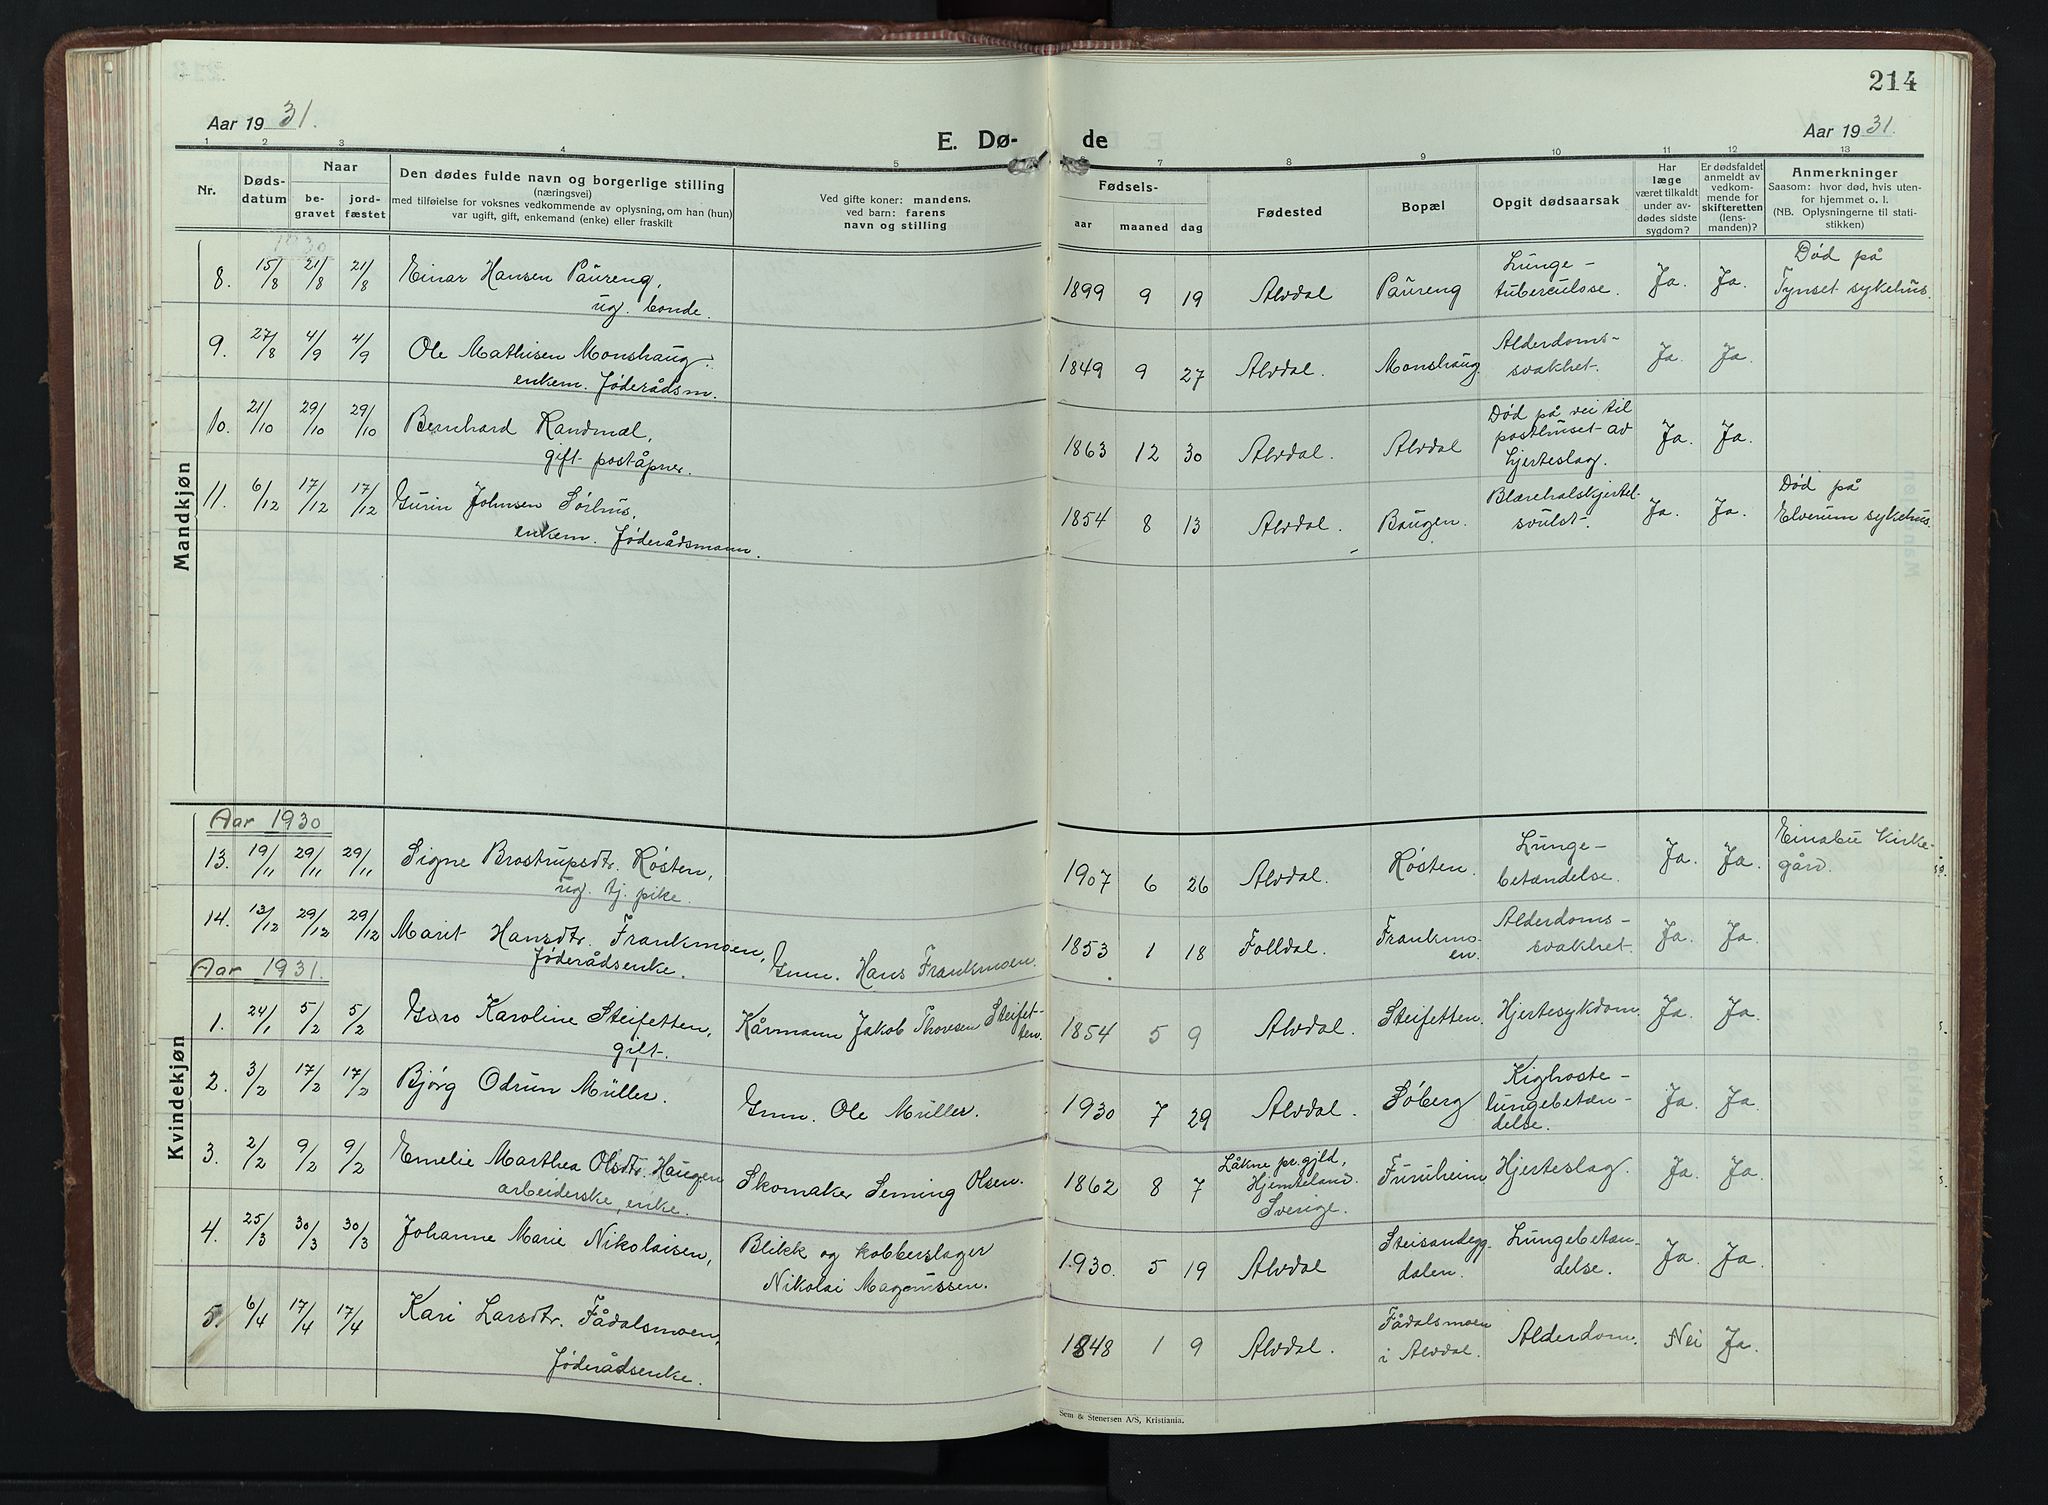 214
Aar 1931.
E. Dø-
de
Aar 1931.
1 2 3 4 5 7 8 9 10 11 12 13
Nr.
Døds-
datum
Naar
be-
gravet
jord-
fæstet
Den dødes fulde navn og borgerlige stilling
(næringsvei)
med tilføielse for voksnes vedkommende av oplysning, om han (hun)
var ugift, gift, enkemand (enke) eller fraskilt
Ved gifte koner: mandens.
ved barn: farens
navn og stilling
Fødsels-
aar maaned dag
Fødested
Bopæl
Opgit dødsaarsak
Har
læge
været tilkaldt
under av-
dødes sidste
sygdom?
Er dødsfaldet
anmeldt av
vedkom-
mende for
skifteretten
(lens-
manden)?
Anmerkninger
Saasom: hvor død, hvis uten-
for hjemmet o. l.
(NB. Oplysningerne til stati-
stikken)
Mandkjøn
1930
8. 15/8 21/8 21/8 Einar Hansen Paureng,
ug. bonde.
1899 9 19 Alvdal Paureng
Lunge-
tuberculose.
Ja. Ja.
Død på
Tynset sykehus.
9. 27/8 4/9 4/9 Ole Mathisen Monshaug.
enkem. Føderådsm.
1849 9 27 Alvdal. Monshaug.
Alderdoms-
svakhet.
Ja. Ja.
10. 21/10 29/10 29/10 Bernhard Randmæl,
gift poståpner.
1863 12 30 Alvdal. Alvdal
Død på vei til
posthuset av
hjerteslag.
Ja. Ja.
11. 6/12 17/12 17/12 Gurin Johnsen Sørhus,
enkem. Føderådsmann.
1854 8 13 Alvdal. Baugen.
Blærehalskjertel-
svulst.
Ja. Ja.
Død på
Elverum sykehus.
Kvindekjøn
Aar 1930
13. 19/11 29/11 29/11 Signe Brostrupsdtr. Røsten,
ug. tj. pike.
1907 6 26 Alvdal. Røsten.
Lunge-
betændelse.
Ja. Ja.
Einabu Kirke-
gård.
14. 13/12 29/12 29/12 Marit Hansdtr. Frankmoen,
Føderådsenke.
Gmn. Hans Frankmoen.
1853 1 18 Folldal.
Frankmo-
en.
Alderdoms-
svakhet.
Ja. Ja.
Aar 1931.
1. 24/1 5/2 5/2 Guro Karoline Steifetten,
gift.
Kårmann Jakob Thoresen Steifet-
ten.
1854 5 9 Alvdal. Steifetten. Hjertesykdom. Ja. Ja.
2. 3/2 17/2 17/2 Bjørg Odrun Müller.
Gmn. Ole Müller.
1930 7 29 Alvdal. Søberg
Kighoste-
lungebetæn-
delse.
Ja. Ja.
3. 2/2 9/2 9/2 Emelie Marthea Olsdtr. Haugen
arbeiderske, enke.
Skomaker Seming Olsen.
1862 8 7
Låkne pr.gjld,
Hjemteland.
Sverige.
Furuheim Hjerteslag. Ja. Ja.
4. 25/3 30/3 30/3 Johanne Marie Nikolaisen,
Blikk og kobberslager
Nikolai Magnussen.
1930. 5 19 Alvdal
Steisandegg-
dalen.
Lungebetæn-
delse.
Ja. Ja.
5. 6/4 17/4 17/4 Kari Larsdtr. Fådalsmoen,
Føderådsenke.
1848 1 9 Alvdal.
Fådalsmoen
i Alvdal.
Alderdom. Nei Ja.
Sem & Stenersen A/S, Kristiania.